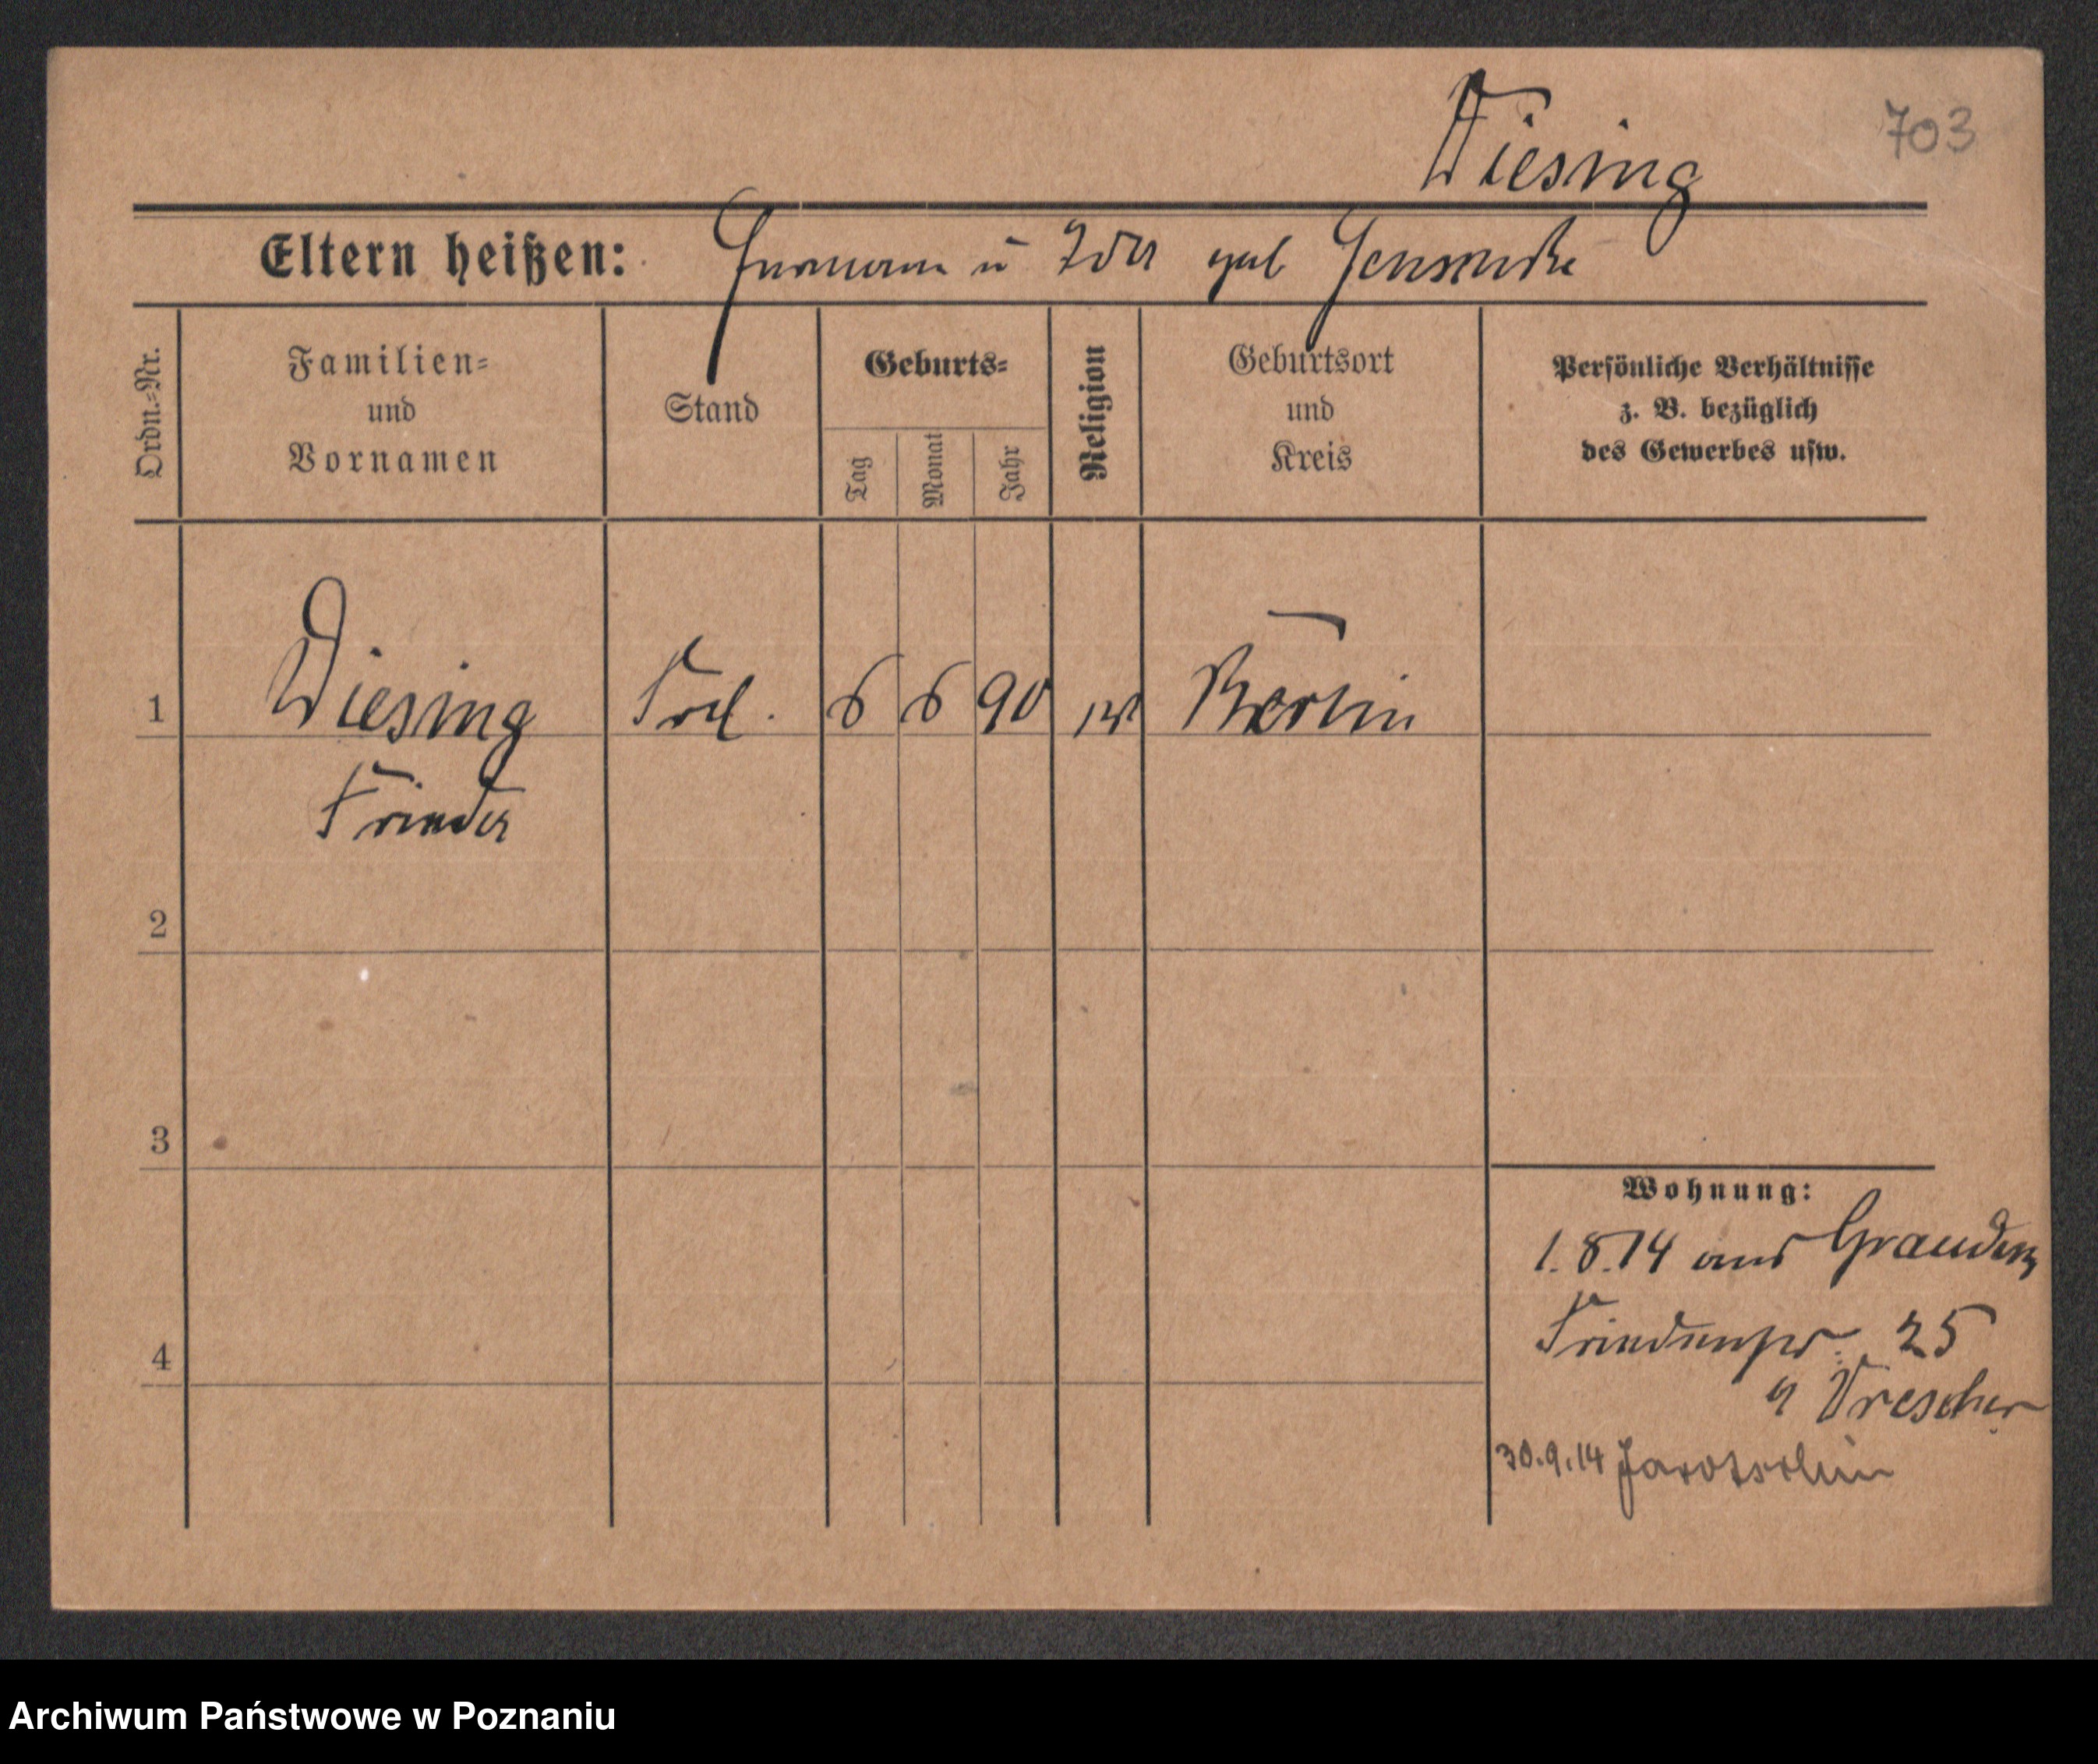 Wiesing
703
Eltern heißen: Hermann u Ida geb
Ordn.=Nr.
Familien=
und
Vornamen
Stand
Geburts=
Tag
Monat
Jahr
Religion
Geburtsort
und
Kreis
Persönliche Verhältnisse
z. B. bezüglich
des Gewerbes usw.
1 Wiesing Frl. 6 6 90 Berlin
Frieda
2
3
4
Wohnung:
1.8.14 aus Graudenz
25
30.9.14 Jarotschin
Archiwum Państwowe w Poznaniu